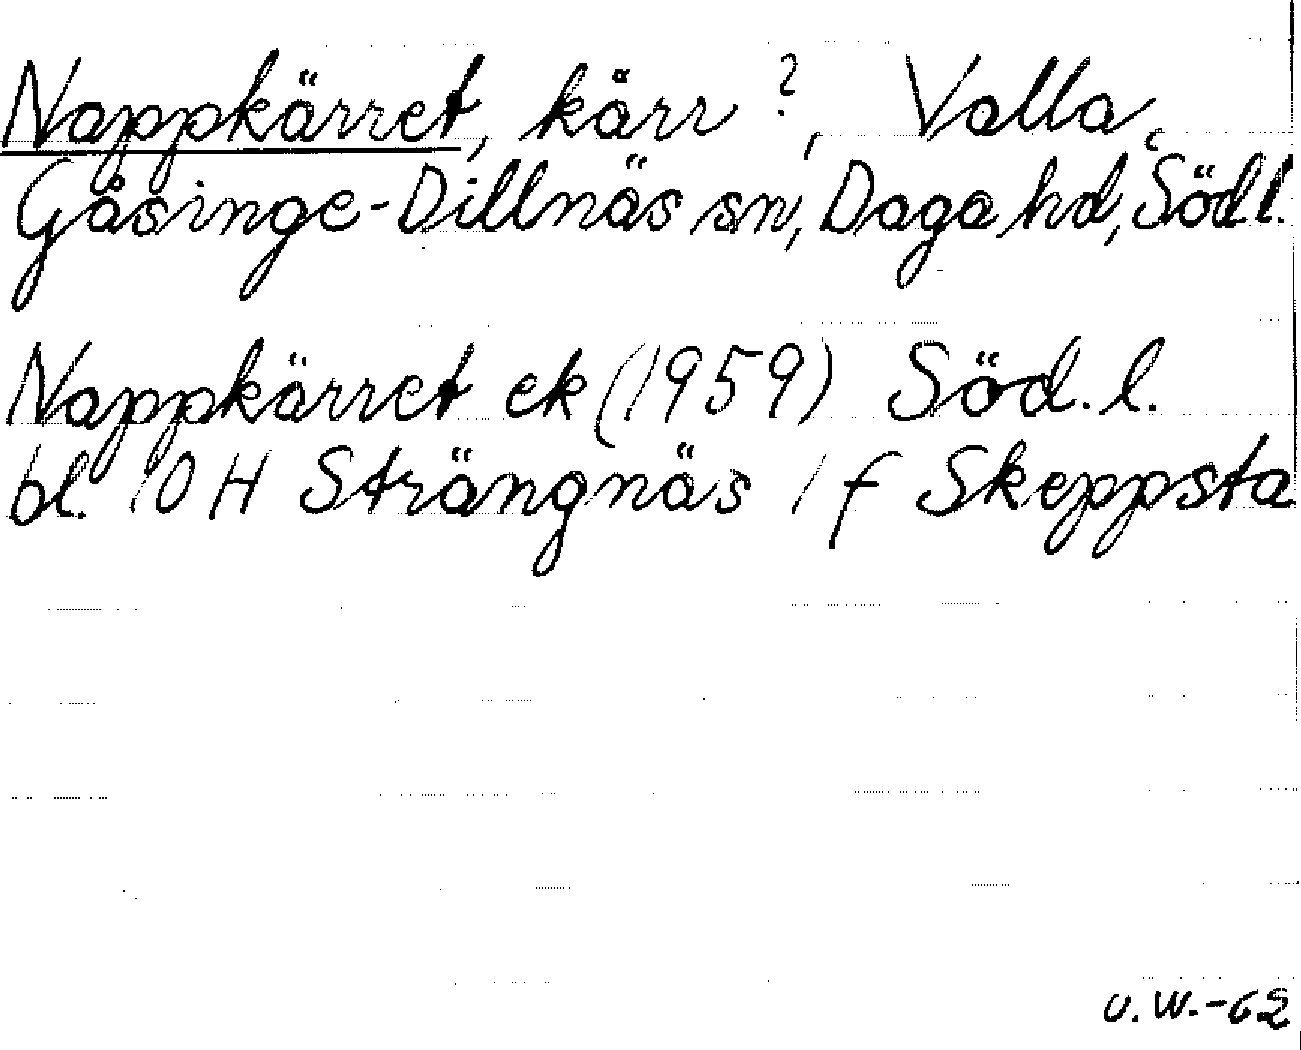 Nappkärret, kärr ?, Valla,
Gåsinge-Dillnäs sn, Daga hd, Södl.
Nappkärret ek (1959) Söd. l.
bl. 10 H Strängnäs 1 f Skeppsta
U.W.-62